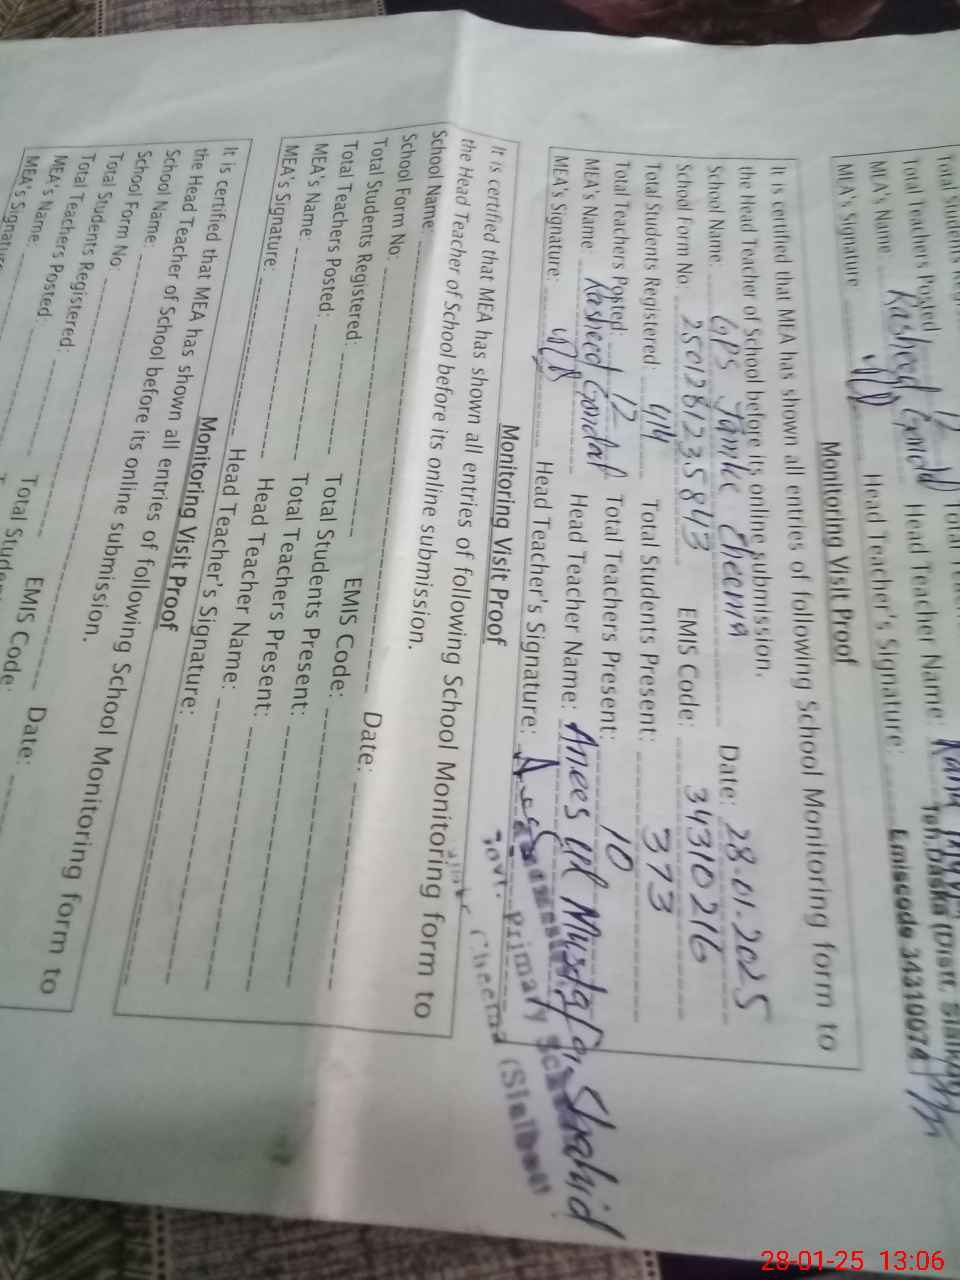 Total Students Reg
Total Teachers Posted 12 Total
MEA's Name Rasheed Gondal Head Teacher Name: Rana
MEA's Signature Head Teacher's Signature:
Teh.Daska (Distt. Sialkot)
Emiscode 34310074
Monitoring Visit Proof
It is certified that MEA has shown all entries of following School Monitoring form to
the Head Teacher of School before its online submission.
School Name: GPS Jamke Cheema Date: 28-01-2025
School Form No: 25012812358943 EMIS Code: 34310216
Total Students Registered: 414 Total Students Present: 373
Total Teachers Posted: 12 Total Teachers Present: 10
MEA's Name: Rasheed Gondal Head Teacher Name: Anees ul Mustafa Shahid
MEA's Signature: Head Teacher's Signature:
Govt. Primary
Cheema (Sialkot)
Monitoring Visit Proof
It is certified that MEA has shown all entries of following School Monitoring form to
the Head Teacher of School before its online submission.
School Name: Date:
School Form No: EMIS Code:
Total Students Registered: Total Students Present:
Total Teachers Posted: Total Teachers Present:
MEA's Name: Head Teacher Name:
MEA's Signature: Head Teacher's Signature:
Monitoring Visit Proof
It is certified that MEA has shown all entries of following School Monitoring form to
the Head Teacher of School before its online submission.
School Name: Date:
School Form No: EMIS Code:
Total Students Registered: Total Stude
Total Teachers Posted: T
MEA's Name:
MEA's Signature
28-01-25 13:06